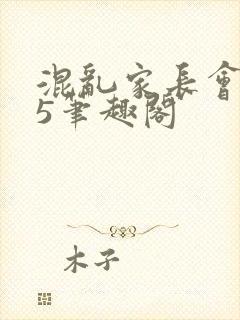 混亂家長會
5筆趣閣
木子